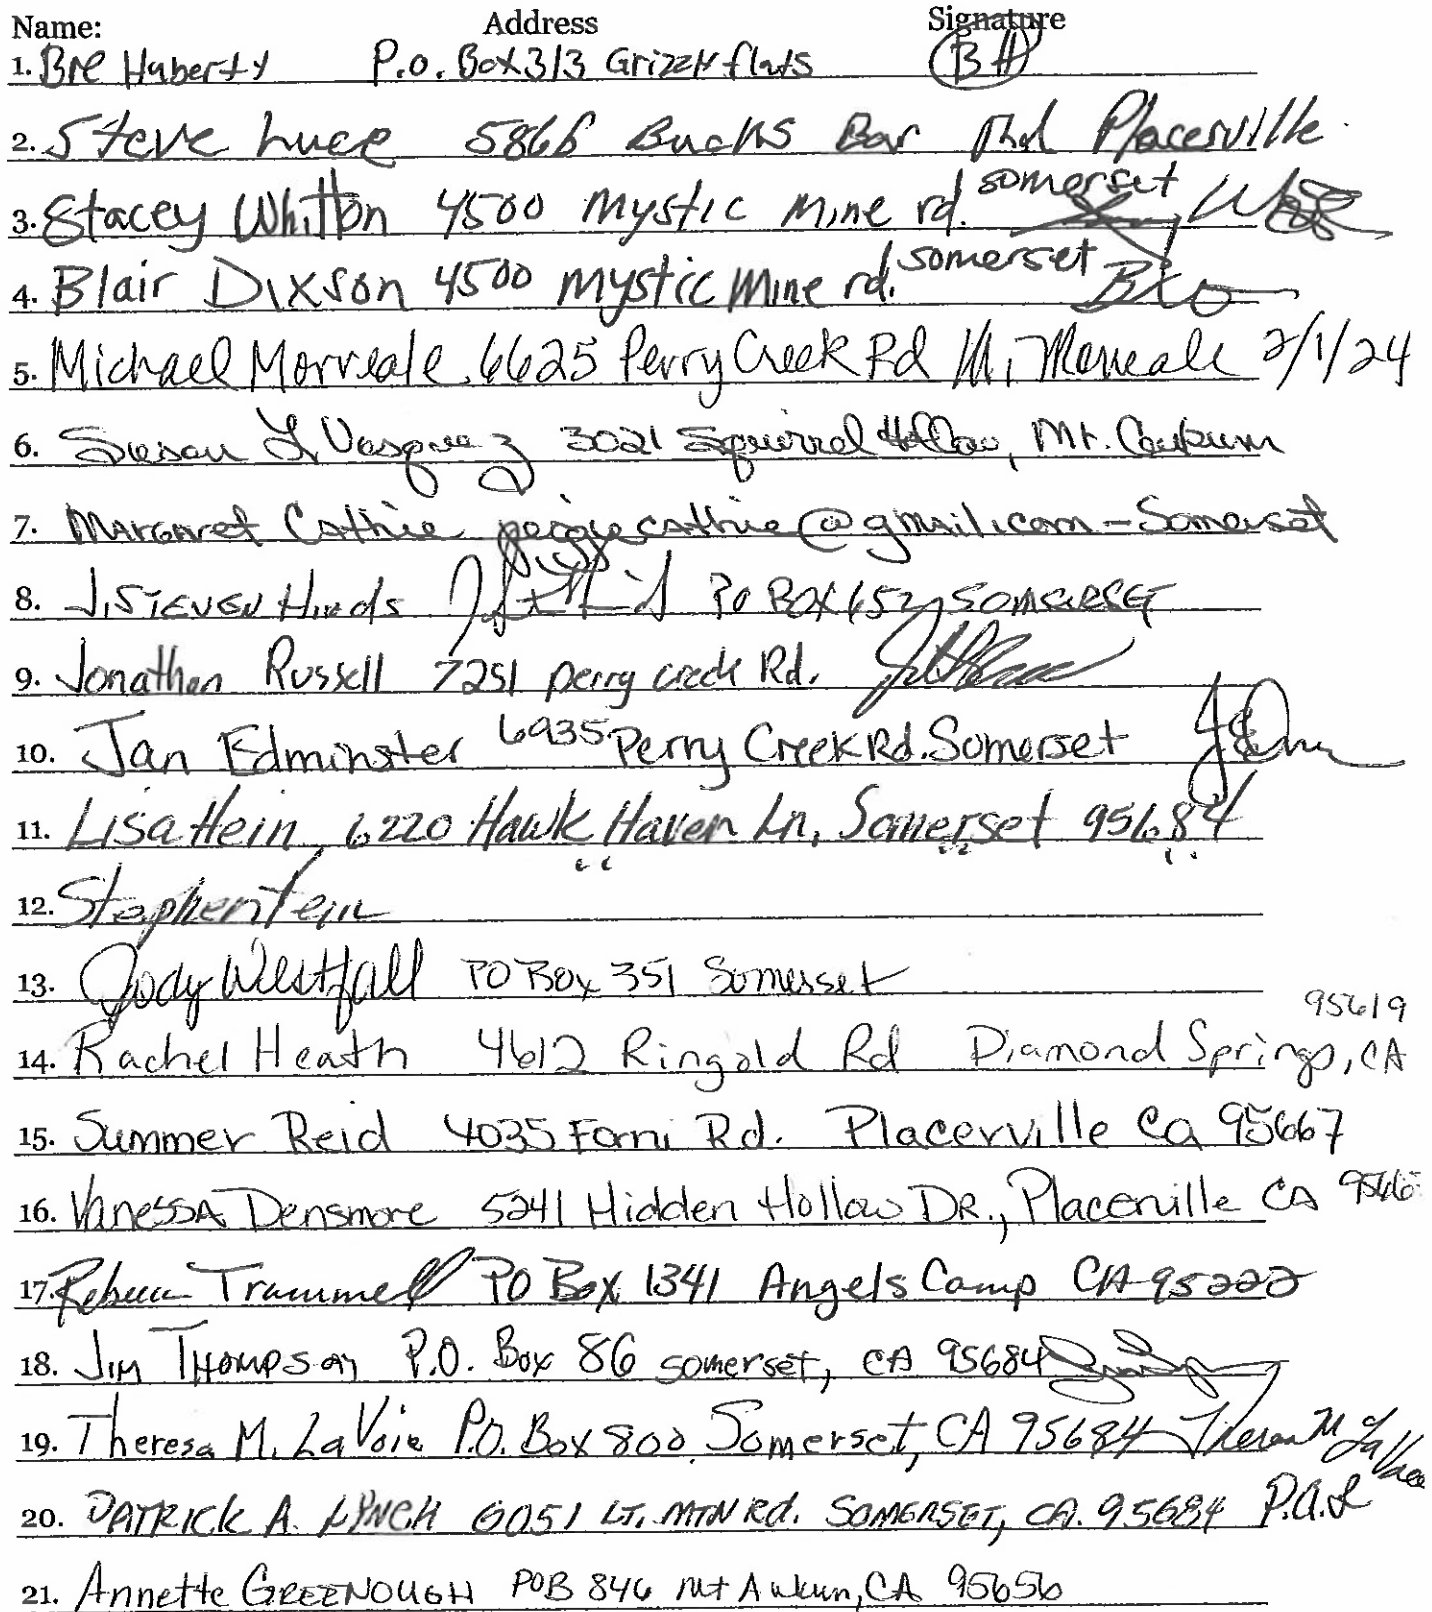 Name: Address Signature
1. Bre Huberty P.O. Box 313 Grizzly flats BH
2. Steve Luce 5866 Bucks Bar Rd Placerville
3. Stacey Whitton 4500 Mystic Mine rd. somerset
4. Blair Dixson 4500 Mystic Mine rd. somerset
5. Michael Morreale 6625 Perry Creek Rd M. Morreale 2/1/24
6. Susan L Vasquez 3021 Squirrel Hollow, Mt. Aukum
7. Margaret Cathie peggiecathie@gmail.com - Somerset
8. J. STEVEN Hinds PO BOX 652 SOMERSET
9. Jonathan Russell 7251 perry creek Rd.
10. Jan Edminster 6935 Perry Creek Rd. Somerset
11. Lisa Hein, 6220 Hawk Haven Ln, Somerset 95684
12. Stephen Hein " " "
13. Jody Westfall PO Box 351 Somerset
14. Rachel Heath 4612 Ringold Rd Diamond Springs, CA 95619
15. Summer Reid 4035 Forni Rd. Placerville Ca 95667
16. Vanessa Densmore 5241 Hidden Hollow DR., Placerville CA
17. Rebecca Trammell PO Box 1341 Angels Camp CA 95222
18. JIM THOMPSON P.O. Box 86 somerset, CA 95684
19. Theresa M. LaVoie P.O. Box 800 Somerset, CA 95684 Theresa M LaVoie
20. PATRICK A. LYNCH 6051 LT. MTN Rd. SOMERSET, CA. 95684 P.A.L
21. Annette GREENOUGH POB 846 Mt Aukum, CA 95656